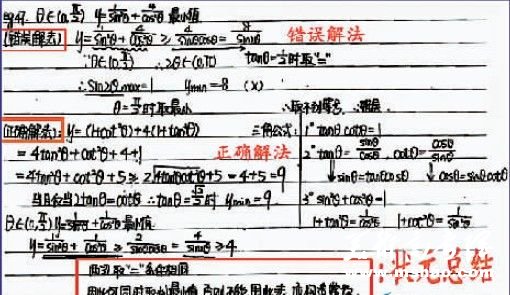 eg47. θ∈(0,π/2) y=1/sin²θ+4/cos²θ 最小值
[错误解法] y=1/sin²θ+4/cos²θ ≥ 4/sinθcosθ = 8/sin2θ 错误解法
∵θ∈(0,π/2) ∴2θ∈(0,π) tanθ=1/2时取"="
∴sin2θmax=1 ymin=8 (×)
θ=π/4时取最小
[正确解法]: y=(1+cot²θ)+4(1+tan²θ) 三角公式: 1° tanθcotθ=1
=4tan²θ+cot²θ+4+1 正确解法 2° tanθ=sinθ/cosθ, cotθ=cosθ/sinθ
=4tan²θ+cot²θ+5≥2√4tan²θcot²θ+5=4+5=9 sinθ=tanθcosθ cosθ=sinθcotθ
当且仅当2tanθ=cotθ ymin=9 3° sin²θ+cos²θ=1
1+tan²θ=1/cos²θ 1+cot²θ=1/sin²θ
θ∈(0,π/2) y=1/sin²θ+1/cos²θ 最小值
y=1/sin²θ+1/cos²θ≥2/sinθcosθ=4/sin2θ≥4
两次取"="条件相同
:状元总结